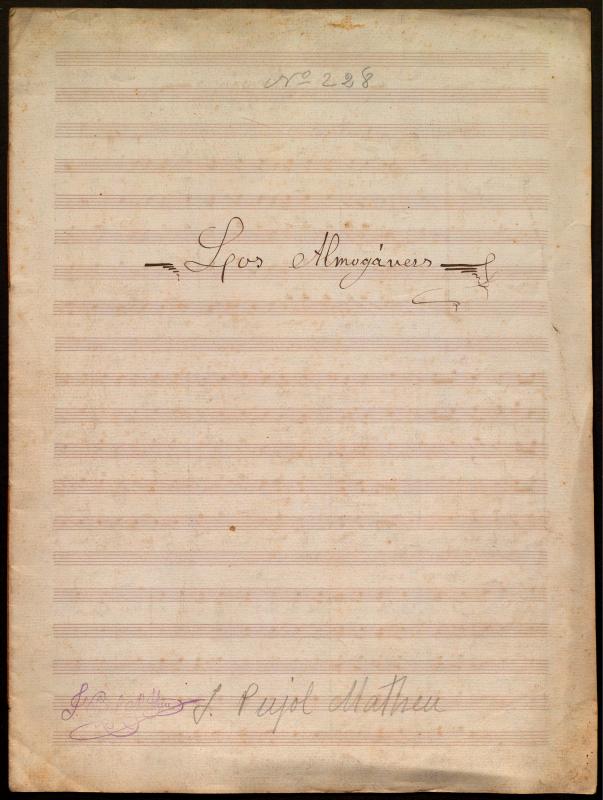 Nº 228
Los Almogávers
J. Pujol Matheu